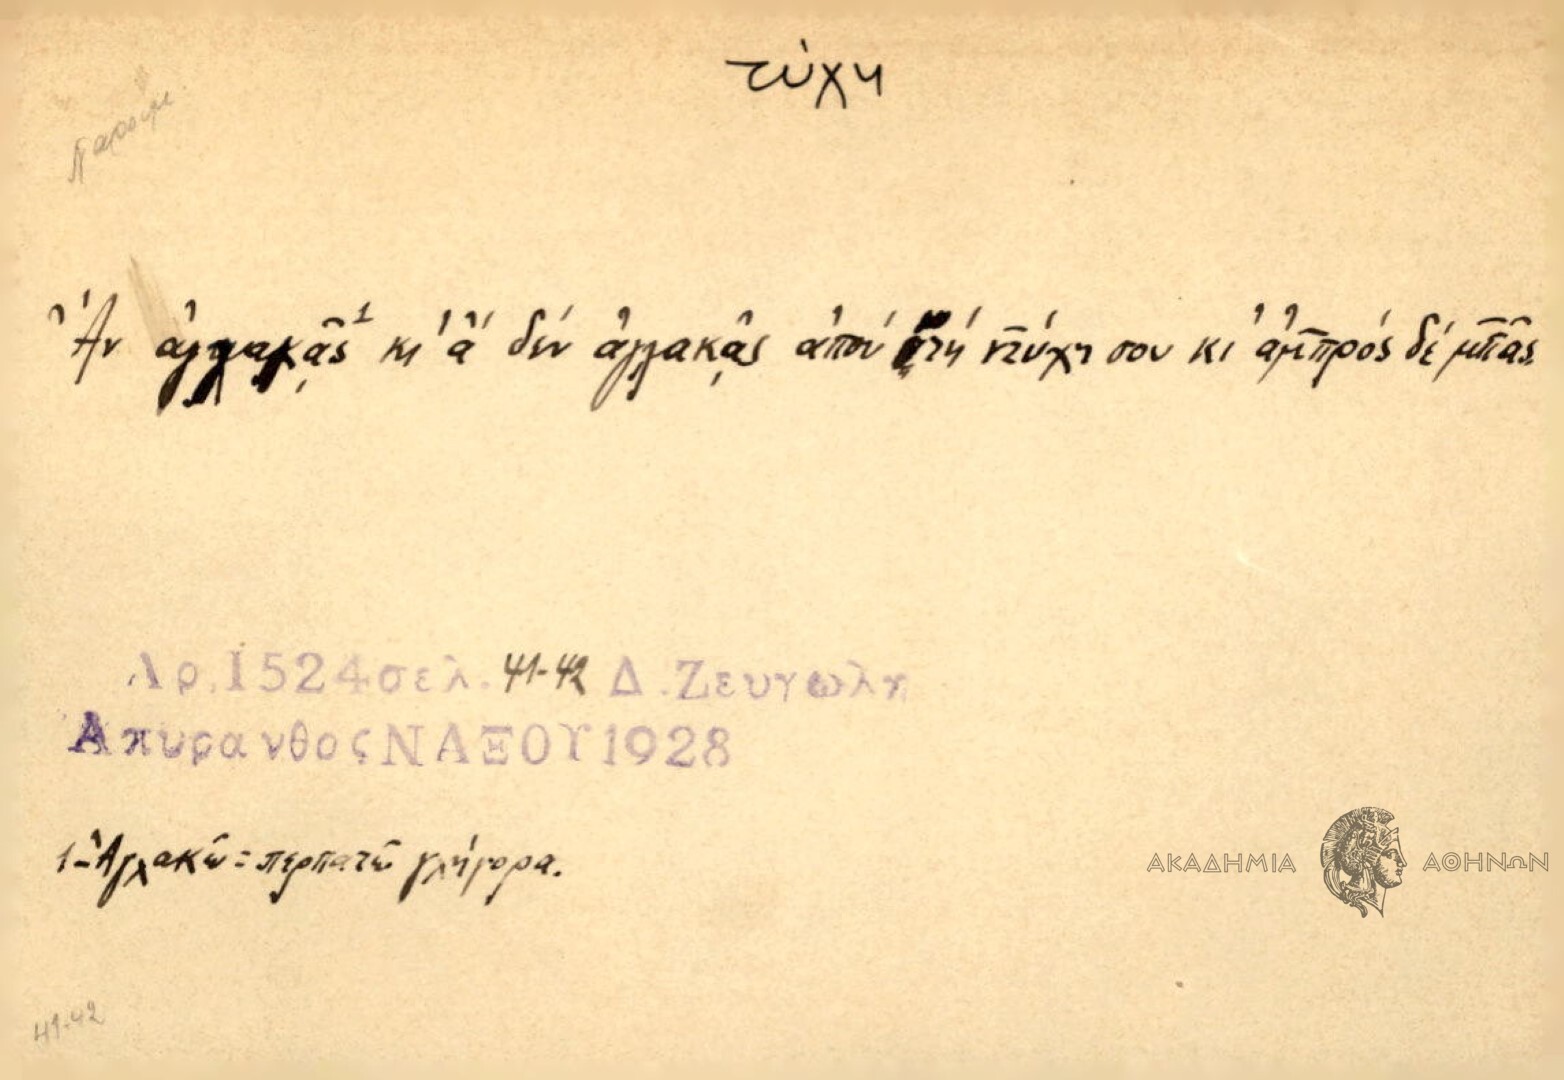 τύχη
Παροιμ
Ἂν ἀγλακᾷς¹ κι' ἂ δέν ἀγλακᾷς ἀπού τή ντύχη σου κι' ἀμπρός δέ μπᾶς
Αρ. 1524 σελ. 41-42 Δ. Ζευγωλη
Απυρανθος ΝΑΞΟΥ 1928
1-Ἀγλακῶ = περπατῶ γλήγορα.
ΑΚΑΔΗΜΙΑ ΑΘΗΝΩΝ
41-42